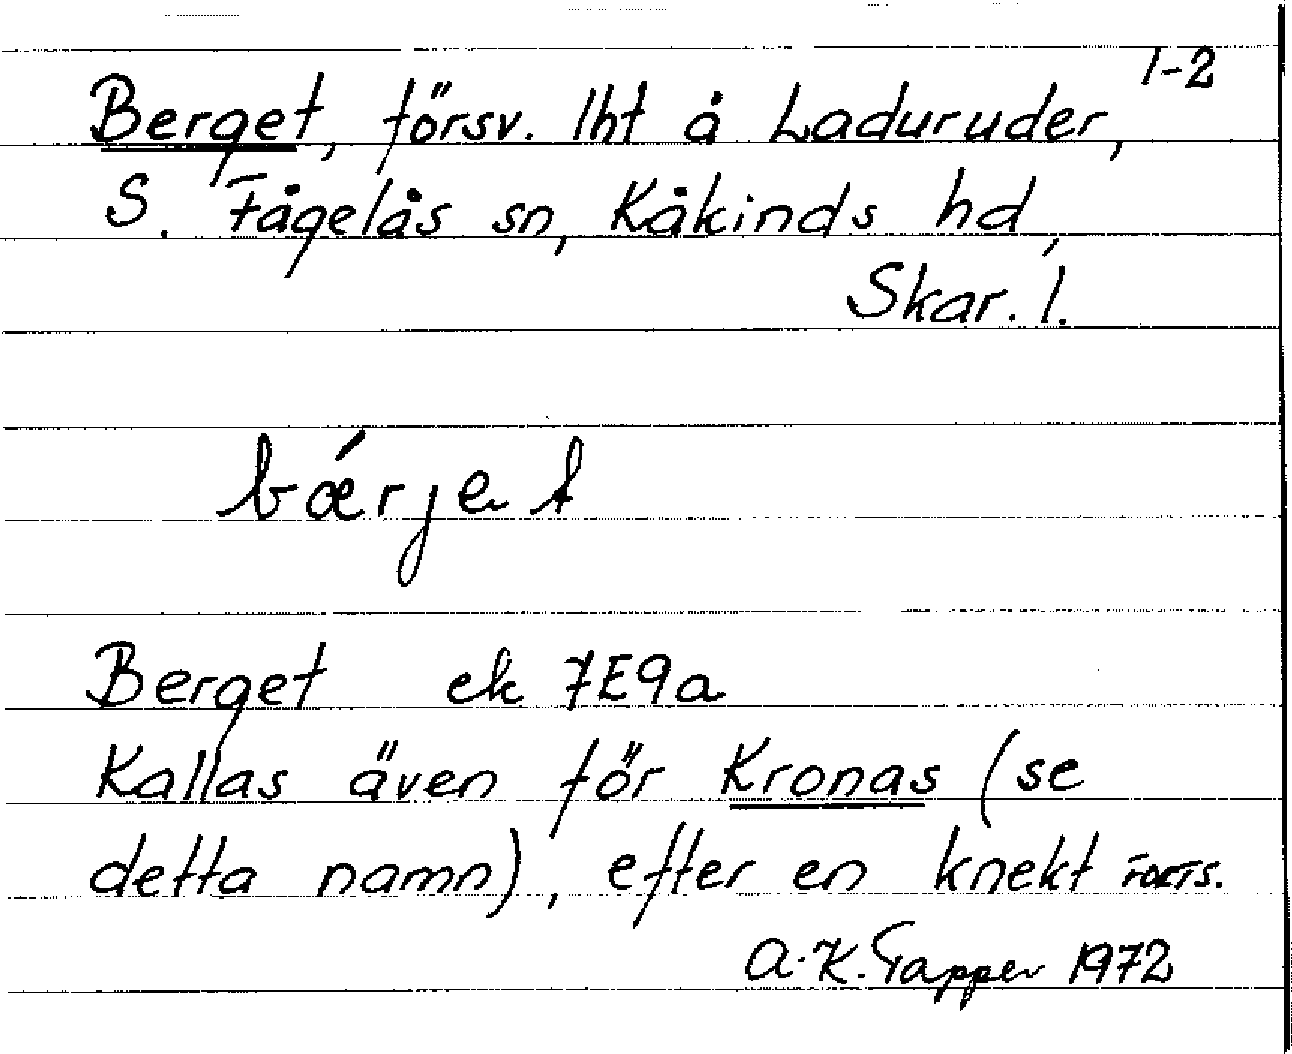 1-2
Berget, försv. lht å Laduruder,
S. Fågelås sn, Kåkinds hd,
Skar. l.
bǽrjet
Berget ek 7E9a
Kallas även för Kronas (se
detta namn), efter en knekt FORTS.
A-K. Tapper 1972